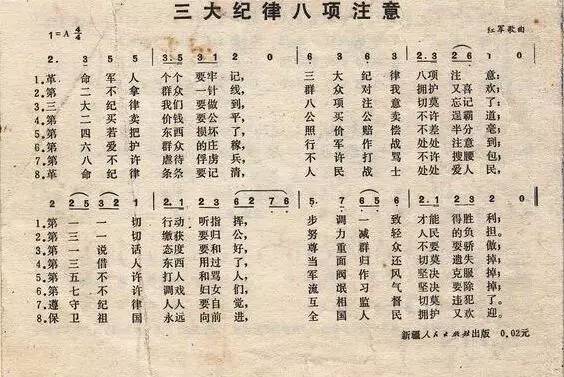 三大纪律八项注意
1=A 4/4 红军歌曲
2. 3 5 5 3.5 3 1 2 0 3 6 3 6 2.3 2 6 1 0
1.革命军人个个要牢记,三大纪律八项注意;
2.第二不拿群众一针线,群众对我拥护又喜欢;
3.三大纪律我们要做到,八项注意切莫忘记了;
4.第二买卖价钱要公平,公买公卖不许逞霸道;
5.第四若把东西损坏了,照价赔偿不差半分毫;
6.第六爱护群众的庄稼,行军作战处处注意到;
7.第八不许虐待俘虏兵,不许打骂不许搜腰包;
8.革命纪律条条要记清,人民战士处处爱人民;
1.第一一切行动听指挥,步调一致才能得胜利;
2.第三一切缴获要归公,努力减轻人民的负担。
3.第一说话态度要和好,尊重群众不要耍骄傲;
4.第三借人东西用过了,当面归还切莫遗失掉;
5.第五不许打人和骂人,军阀作风坚决克服掉;
6.第七不许调戏妇女们,流氓习气坚决要除掉;
7.遵守纪律人人要自觉,互相监督切莫违犯了。
8.保卫祖国永远向前进,全国人民拥护又欢迎。
新疆人民出版社出版 0.02元